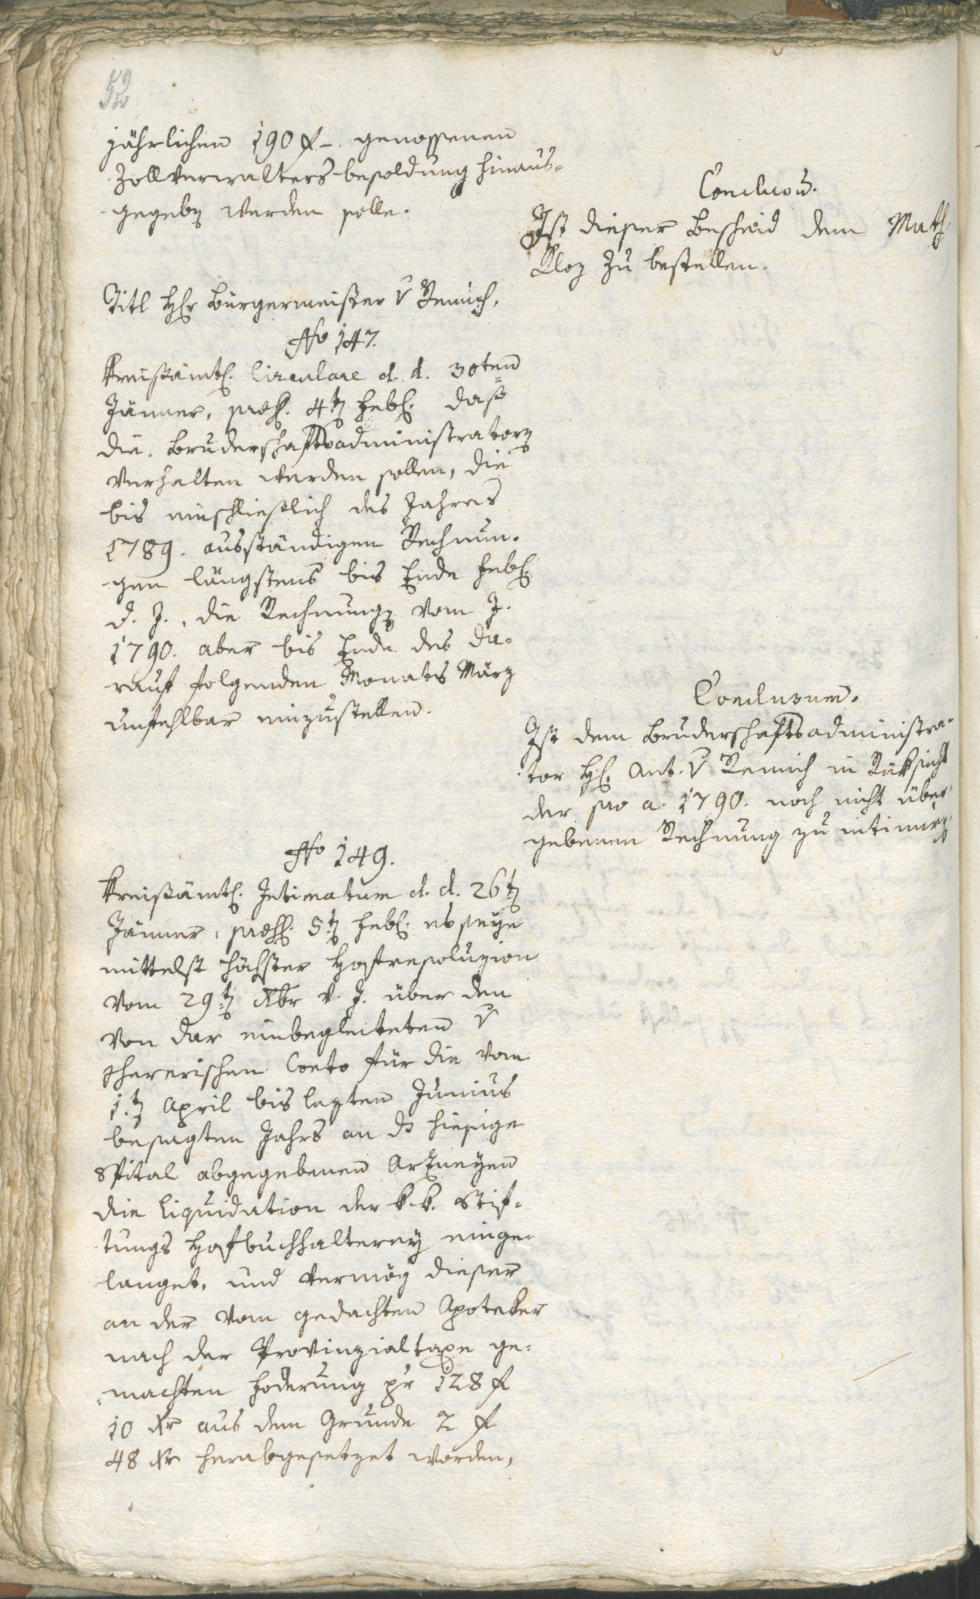 52
jährlichen 190 f –. genossenen
Zollverwaltersbesoldung hinaus-
gegeben werden solle.
Conclusum.
Ist dieser Bescheid dem Math.
Kloz zu bestellen.
Titl H. Bürgermeister v Remich.
No 147.
Kreißämtl. Circulare d. d. 30ten
Jänner, præs. 4t Febl. daß
die Bruderschaftsadministratorn
verhalten werden sollen, die
bis einschließlich des Jahres
1789. ausständigen Rechnun-
gen längstens bis Ende Febl.
d. J., die Rechnung vom J.
1790. aber bis Ende des da-
rauf folgenden Monats März
unfehlbar einzustellen.
Conclusum.
Ist dem Bruderschaftsadministra-
tor H. Ant. v Remich in Rüksicht
der pro a. 1790. noch nicht über-
gebenen Rechnung zu intimirn
No 149.
Kreißämtl. Intimatum d. d. 26t
Jänner, præs. 5t Febl. es seye
mittelst höchster Hofresoluzion
vom 29t Xbr v. J. über den
von dar einbegleiteten v
Conto für die vom
1.t April bis lezten Junius
besagten Jahrs an ds hiesige
Spital abgegebenen Arzneyen
die Liquidation der k. k. Stif-
tungs Hofbuchhalterey einge-
langet, und vermög dieser
an der vom gedachten Apoteker
nach der Provinzialtaxe ge-
machten Foderung pr 128 f
10 xr aus dem Grunde 2 f
48 xr herabgesetzet worden,